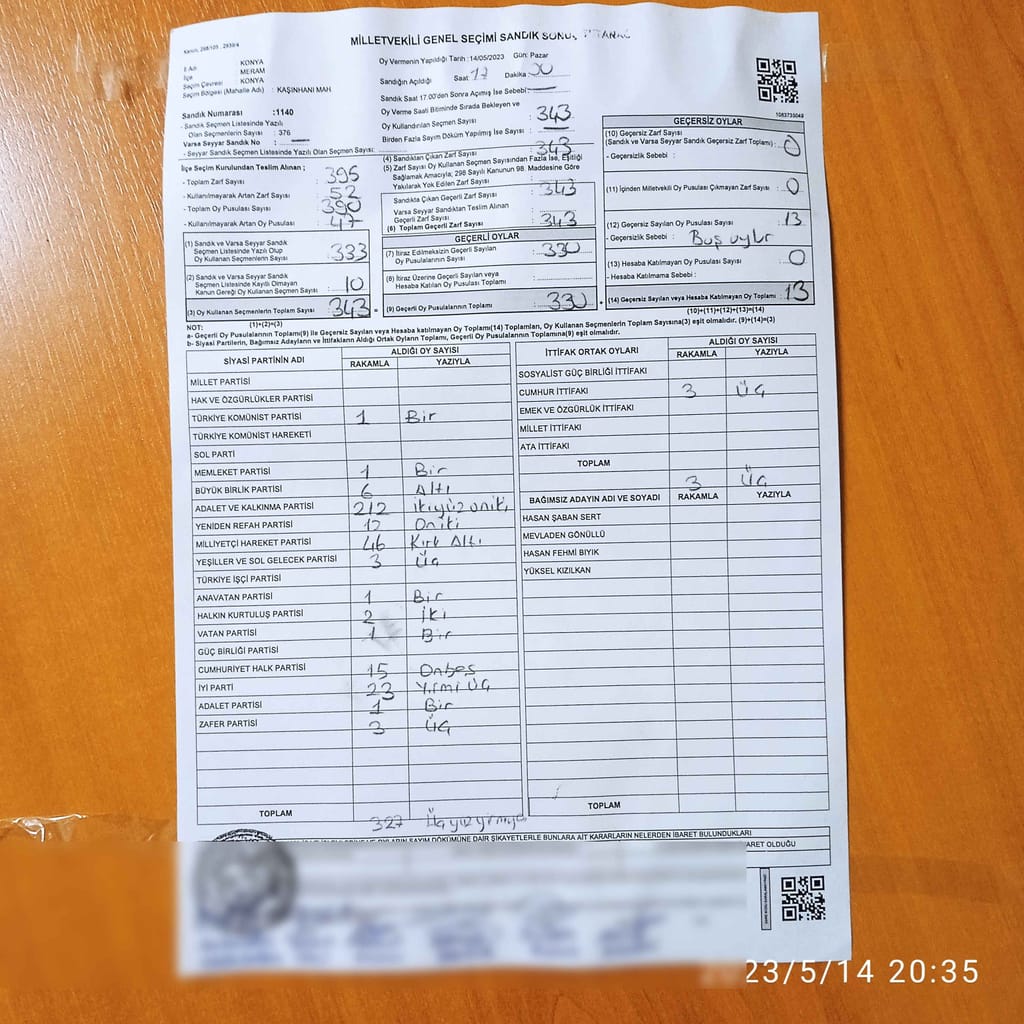 Kanun, 298/105 , 2839/4
MİLLETVEKİLİ GENEL SEÇİMİ SANDIK
İl Adı : KONYA
İlçe : MERAM
Seçim Çevresi : KONYA
Seçim Bölgesi (Mahalle Adı) : KAŞINHANI MAH
Sandık Numarası : 1140
- Sandık Seçmen Listesinde Yazılı
Olan Seçmenlerin Sayısı : 376
Varsa Seyyar Sandık No :
- Seyyar Sandık Seçmen Listesinde Yazılı Olan Seçmen Sayısı:
Oy Vermenin Yapıldığı Tarih :14/05/2023 Gün: Pazar
Sandığın Açıldığı Saat : 17 Dakika : 00
Sandık Saat 17.00'den Sonra Açılmış İse Sebebi:
Oy Verme Saati Bitiminde Sırada Bekleyen ve
Oy Kullandırılan Seçmen Sayısı : 343
Birden Fazla Sayım Döküm Yapılmış İse Sayısı :
1083735049
İlçe Seçim Kurulundan Teslim Alınan ;
- Toplam Zarf Sayısı : 395
- Kullanılmayarak Artan Zarf Sayısı : 52
- Toplam Oy Pusulası Sayısı : 390
- Kullanılmayarak Artan Oy Pusulası : 47
(1) Sandık ve Varsa Seyyar Sandık
Seçmen Listesinde Yazılı Olup
Oy Kullanan Seçmenlerin Sayısı : 333
(2) Sandık ve Varsa Seyyar Sandık
Seçmen Listesinde Kayıtlı Olmayan
Kanun Gereği Oy Kullanan Seçmen Sayısı : 10
(3) Oy Kullanan Seçmenlerin Toplam Sayısı : 343 =
(1)+(2)=(3)
(4) Sandıktan Çıkan Zarf Sayısı : 343
(5) Zarf Sayısı Oy Kullanan Seçmen Sayısından Fazla İse, Eşitliği
Sağlamak Amacıyla; 298 Sayılı Kanunun 98. Maddesine Göre
Yakılarak Yok Edilen Zarf Sayısı :
Sandıkta Çıkan Geçerli Zarf Sayısı : 343
Varsa Seyyar Sandıktan Teslim Alınan
Geçerli Zarf Sayısı :
(6) Toplam Geçerli Zarf Sayısı : 343
GEÇERLİ OYLAR
(7) İtiraz Edilmeksizin Geçerli Sayılan
Oy Pusulalarının Sayısı : 330
(8) İtiraz Üzerine Geçerli Sayılan veya
Hesaba Katılan Oy Pusulaları Toplamı :
(9) Geçerli Oy Pusulalarının Toplamı : 330 +
GEÇERSİZ OYLAR
(10) Geçersiz Zarf Sayısı
(Sandık ve Varsa Seyyar Sandık Geçersiz Zarf Toplamı) : 0
- Geçersizlik Sebebi :
(11) İçinden Milletvekili Oy Pusulası Çıkmayan Zarf Sayısı : 0
(12) Geçersiz Sayılan Oy Pusulası Sayısı : 13
- Geçersizlik Sebebi : Boş oylr
(13) Hesaba Katılmayan Oy Pusulası Sayısı : 0
- Hesaba Katılmama Sebebi :
(14) Geçersiz Sayılan veya Hesaba Katılmayan Oy Toplamı : 13
(10)+(11)+(12)+(13)=(14)
NOT:
a- Geçerli Oy Pusulalarının Toplamı(9) ile Geçersiz Sayılan veya Hesaba katılmayan Oy Toplamı(14) Toplamları, Oy Kullanan Seçmenlerin Toplam Sayısına(3) eşit olmalıdır. (9)+(14)=(3)
b- Siyasi Partilerin, Bağımsız Adayların ve İttifakların Aldığı Ortak Oyların Toplamı, Geçerli Oy Pusulalarının Toplamına(9) eşit olmalıdır.
SİYASİ PARTİNİN ADI ALDIĞI OY SAYISI
RAKAMLA YAZIYLA
MİLLET PARTİSİ
HAK VE ÖZGÜRLÜKLER PARTİSİ
TÜRKİYE KOMÜNİST PARTİSİ 1 Bir
TÜRKİYE KOMÜNİST HAREKETİ
SOL PARTİ
MEMLEKET PARTİSİ 1 Bir
BÜYÜK BİRLİK PARTİSİ 6 Altı
ADALET VE KALKINMA PARTİSİ 212 ikiyüz oniki
YENİDEN REFAH PARTİSİ 12 Oniki
MİLLİYETÇİ HAREKET PARTİSİ 46 Kırk Altı
YEŞİLLER VE SOL GELECEK PARTİSİ 3 Üç
TÜRKİYE İŞÇİ PARTİSİ
ANAVATAN PARTİSİ 1 Bir
HALKIN KURTULUŞ PARTİSİ 2 İki
VATAN PARTİSİ 1 Bir
GÜÇ BİRLİĞİ PARTİSİ
CUMHURİYET HALK PARTİSİ 15 Onbeş
İYİ PARTİ 23 Yirmi Üç
ADALET PARTİSİ 1 Bir
ZAFER PARTİSİ 3 Üç
TOPLAM 327
İTTİFAK ORTAK OYLARI ALDIĞI OY SAYISI
RAKAMLA YAZIYLA
SOSYALİST GÜÇ BİRLİĞİ İTTİFAKI
CUMHUR İTTİFAKI 3 Üç
EMEK VE ÖZGÜRLÜK İTTİFAKI
MİLLET İTTİFAKI
ATA İTTİFAKI
TOPLAM 3 Üç
BAĞIMSIZ ADAYIN ADI VE SOYADI RAKAMLA YAZIYLA
HASAN ŞABAN SERT
MEVLADEN GÖNÜLLÜ
HASAN FEHMİ BIYIK
YÜKSEL KIZILKAN
TOPLAM
SAYIM DÖKÜMÜNE DAİR ŞİKAYETLERLE BUNLARA AİT KARARLARIN NELERDEN İBARET BULUNDUKLARI
OLDUĞU
23/5/14 20:35